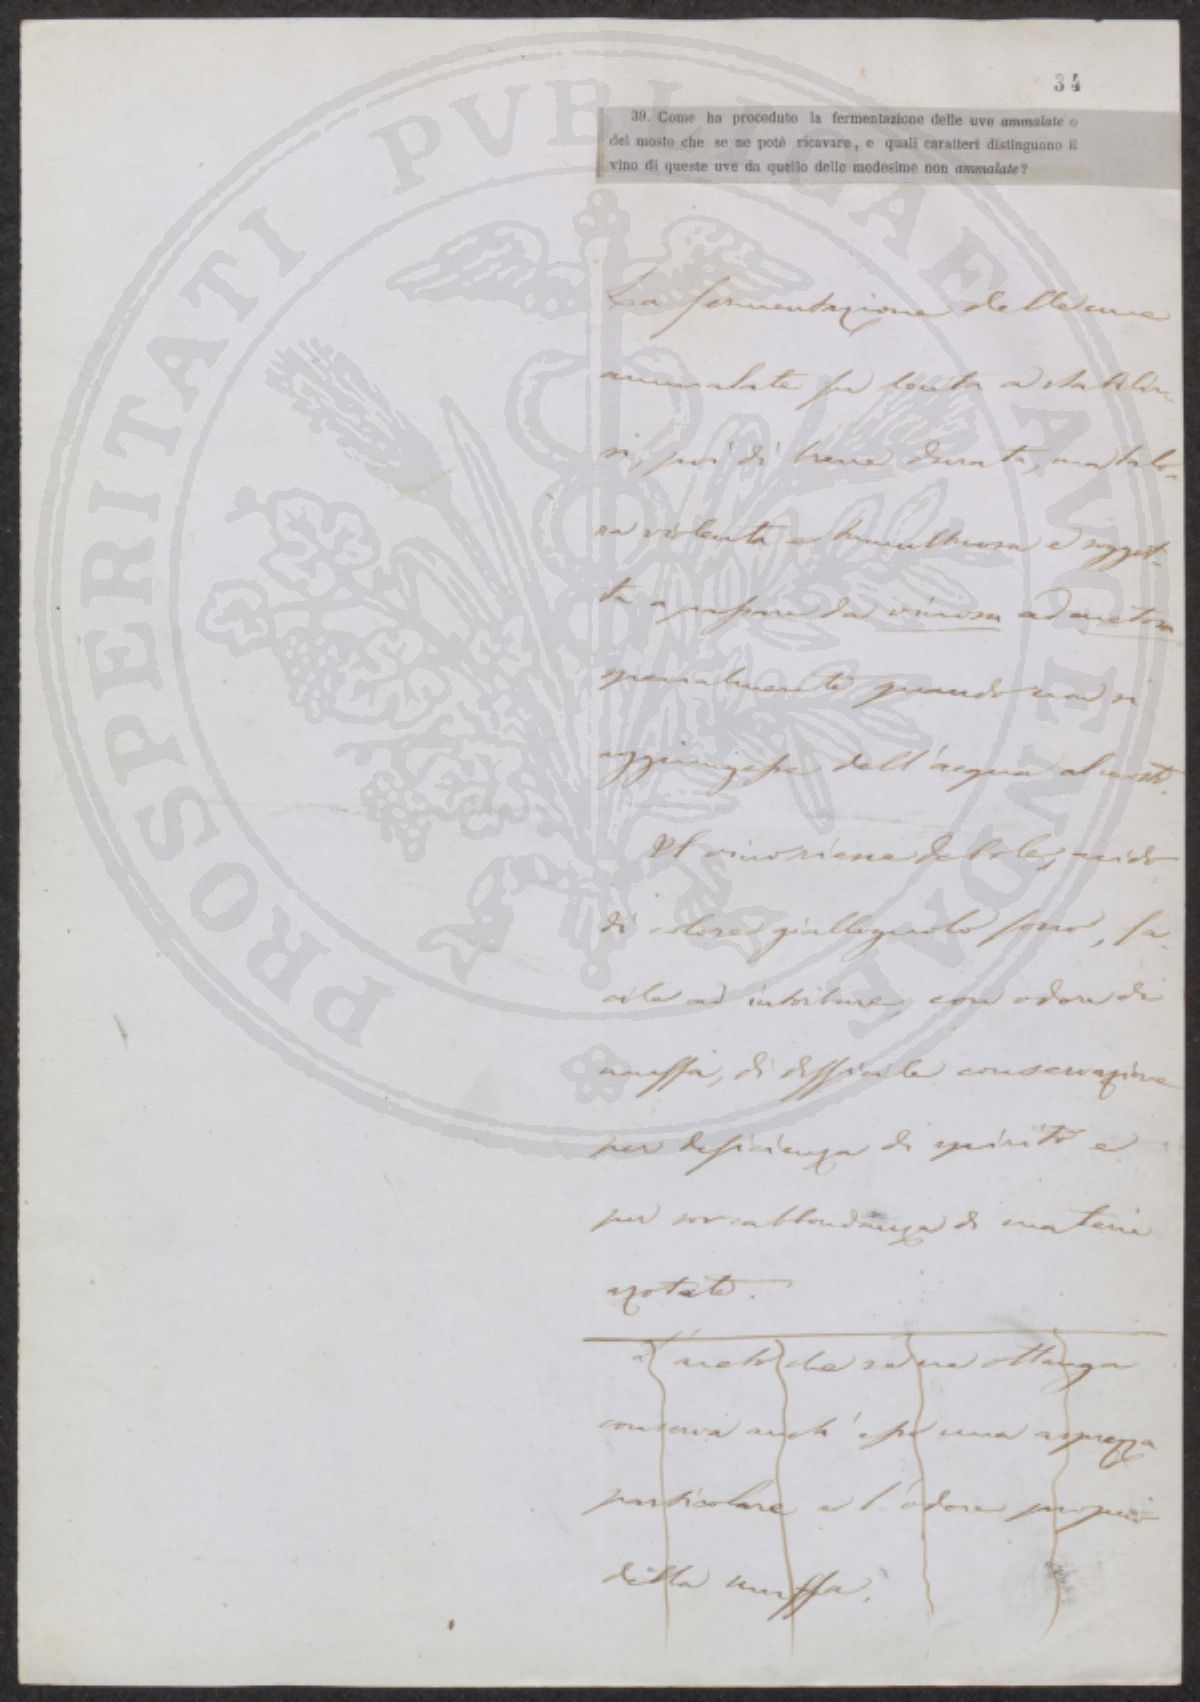 34
39. Come ha proceduto la fermentazione delle uve ammalate o
del mosto che se ne potè ricavare, e quali caratteri distinguono il
vino di queste uve da quello delle medesime non ammalate?
PROSPERITATI PVBLICAE AVGENDAE
La fermentazione delle uve
ammalate fu lenta a stabilir
si, poi di breve durata, ma talo-
ra violenta e tumultuosa e sogget-
ta a passare da vinosa ad acetosa
specialmente quando non si
aggiungesse dell'acqua al mosto.
Il vino riesce debole, acido
di colore giallognolo fosco, fa-
cile ad intorbidare, con odore di
muffa, di difficile conservazione
per deficienza di spirito e
per sovrabbondanza di materie
azotate.
L'aceto che se ne ottenga
conserva anch'esso una asprezza
particolare e l'odore proprio
della muffa.